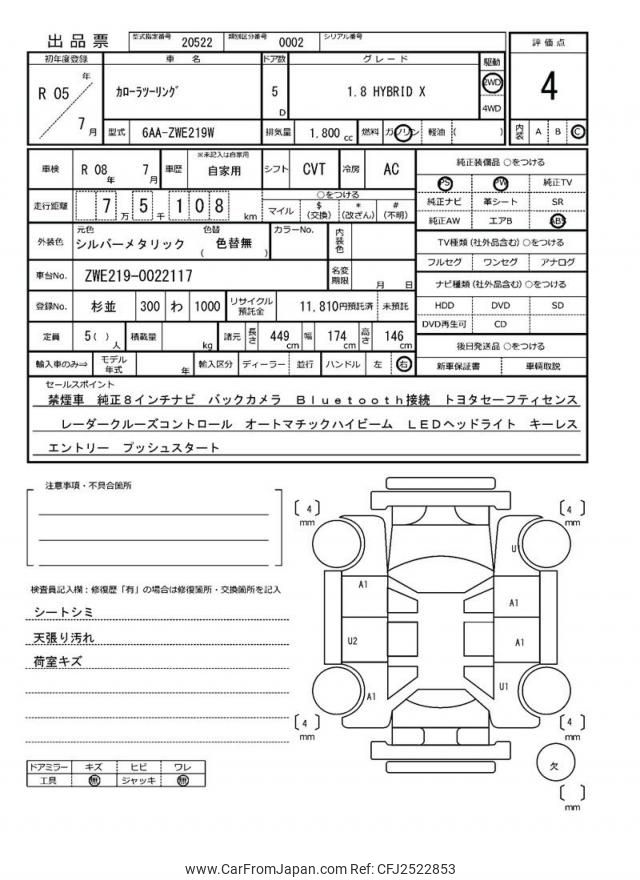 出品票 型式指定番号 20522 類別区分番号 0002 シリアル番号
初年度登録 車名 ドア数 グレード 駆動 評価点
R 05 年 7 月 カローラツーリング 5 D 1.8 HYBRID X 2WD 4WD 4
型式 6AA-ZWE219W 排気量 1.800 cc 燃料 ガソリン 軽油 ( ) 内装 A B C
車検 R 08 年 7 月 車歴 ※未記入は自家用 自家用 シフト CVT 冷房 AC
純正装備品 ○をつける
PS PW 純正TV
純正ナビ 革シート SR
純正AW エアB ABS
走行距離 7 万 5 千 1 0 8 km ○をつける
マイル $ (交換) * (改ざん) # (不明)
外装色 元色 シルバーメタリック 色替 ( 色替無 ) カラーNo. 内装色
TV種類 (社外品含む) ○をつける
フルセグ ワンセグ アナログ
車台No. ZWE219-0022117 名変期限 月 日
ナビ種類 (社外品含む) ○をつける
HDD DVD SD
DVD再生可 CD
登録No. 杉並 300 わ 1000 リサイクル預託金 11,810円預託済 未預託
定員 5 ( ) 人 積載量 kg 諸元 長さ 449 cm 幅 174 cm 高さ 146 cm
後日発送品 ○をつける
新車保証書 車輌取説
輸入車のみ⇒ モデル年式 年 輸入区分 ディーラー 並行 ハンドル 左 右
セールスポイント
禁煙車 純正8インチナビ バックカメラ Bluetooth接続 トヨタセーフティセンス
レーダークルーズコントロール オートマチックハイビーム LEDヘッドライト キーレス
エントリー プッシュスタート
注意事項・不具合箇所
検査員記入欄:修復歴「有」の場合は修復箇所・交換箇所を記入
シートシミ
天張り汚れ
荷室キズ
ドアミラー キズ ヒビ ワレ
工具 無 ジャッキ 無
4 mm
4 mm
U1
A1
A1
U2
A1
A1
U1
4 mm
4 mm
欠
mm
www.CarFromJapan.com Ref: CFJ2522853